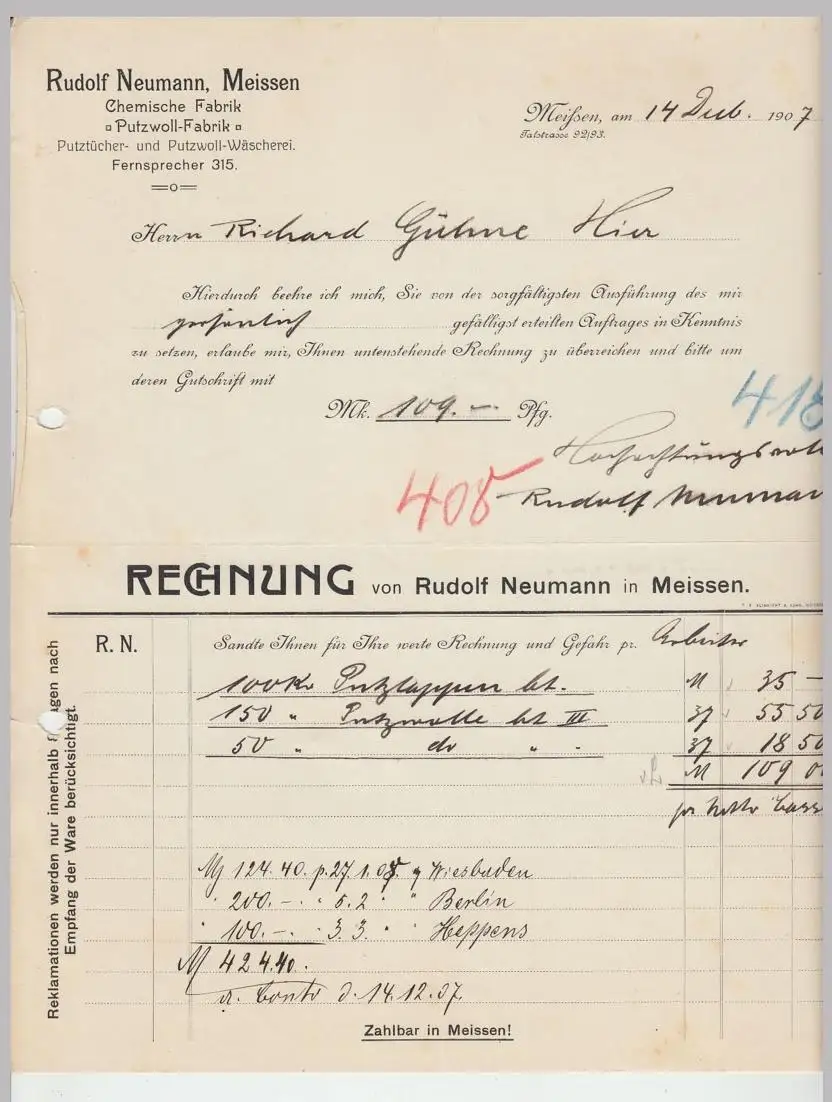 Rudolf Neumann, Meissen
Chemische Fabrik
Putzwoll-Fabrik
Putztücher- und Putzwoll-Wäscherei.
Fernsprecher 315.
Meißen, am 14 Deb. 1907
Talstrasse 92/93.
Herrn Richard Gühne Hier
Hierdurch beehre ich mich, Sie von der sorgfältigsten Ausführung des mir
persönlich gefälligst erteilten Auftrages in Kenntnis
zu setzen, erlaube mir, Ihnen untenstehende Rechnung zu überreichen und bitte um
deren Gutschrift mit
Mk. 109.— Pfg.
418
Hochachtungsvoll
408 Rudolf Neuman
RECHNUNG von Rudolf Neumann in Meissen.
R. N. Sandte Ihnen für Ihre werte Rechnung und Gefahr pr. Arbeiter
100 Ko Putzlappen bt. M 35 —
150 " Putzwolle bt III 37 55 50
50 " do " - 37 18 50
M 109 0
pr Netto Cass
M 124.40. p. 27.1.08 Wiesbaden
" 200.—. " 5.2 " " Berlin
" 100.—. " 3.3. " " Heppens
M 424.40.
a. Conto d. 14.12.07.
Zahlbar in Meissen!
Reklamationen werden nur innerhalb 8 Tagen nach
Empfang der Ware berücksichtigt.